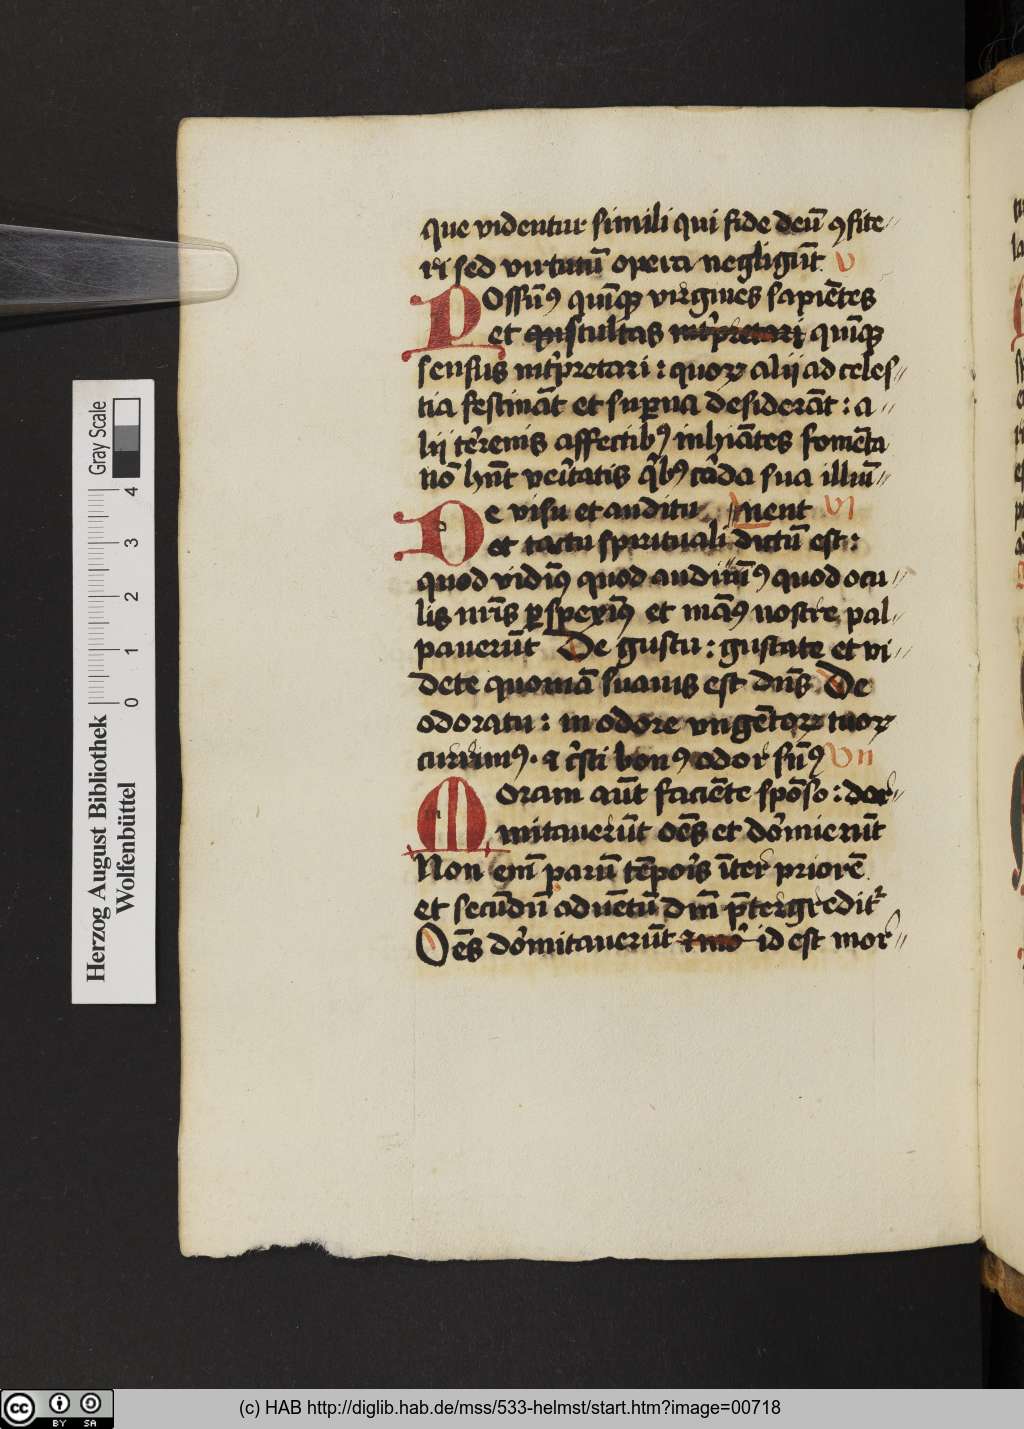 que videntur simili qui fide deū ꝯfite〃
ri sed virtutū opera negligūt V
Possūꝰ quīqꝫ virgines sapiētes
et qui stultas int̄pretari quīqꝫ
sensus int̄pretari : quoꝝ alii ad celes〃
tia festināt et superna desiderāt : a〃
lii terrenis affectibꝰ inhiātes fomēta
nō hn̄t veritatis qͥbꝰ corda sua illumi〃
De visu et auditu nent VI
et tactu spirituali dictū est :
quod vidimꝰ quod audiuimꝰ quod ocu〃
lis nr̄is ꝑspeximꝰ et manꝰ nostre pal〃
pauerūt De gustu : gustate et vi〃
dete quoniā suauis est dn̄s De
odoratu : in odore vngētoꝝ tuoꝝ
currimꝰ · et cristi bonꝰ odor sumꝰ VII
Moram aūt faciēte spōso : dor〃
mitauerūt oēs et dormierūt
Non enī parū tēporis inter priorē
et secūdū aduētū dn̄i p̄tergredit᷑
Oēs dormitauerūt id est mor〃
Herzog August Bibliothek
Wolfenbüttel
0 1 2 3 4
Gray Scale
cc BY SA
(c) HAB http://diglib.hab.de/mss/533-helmst/start.htm?image=00718